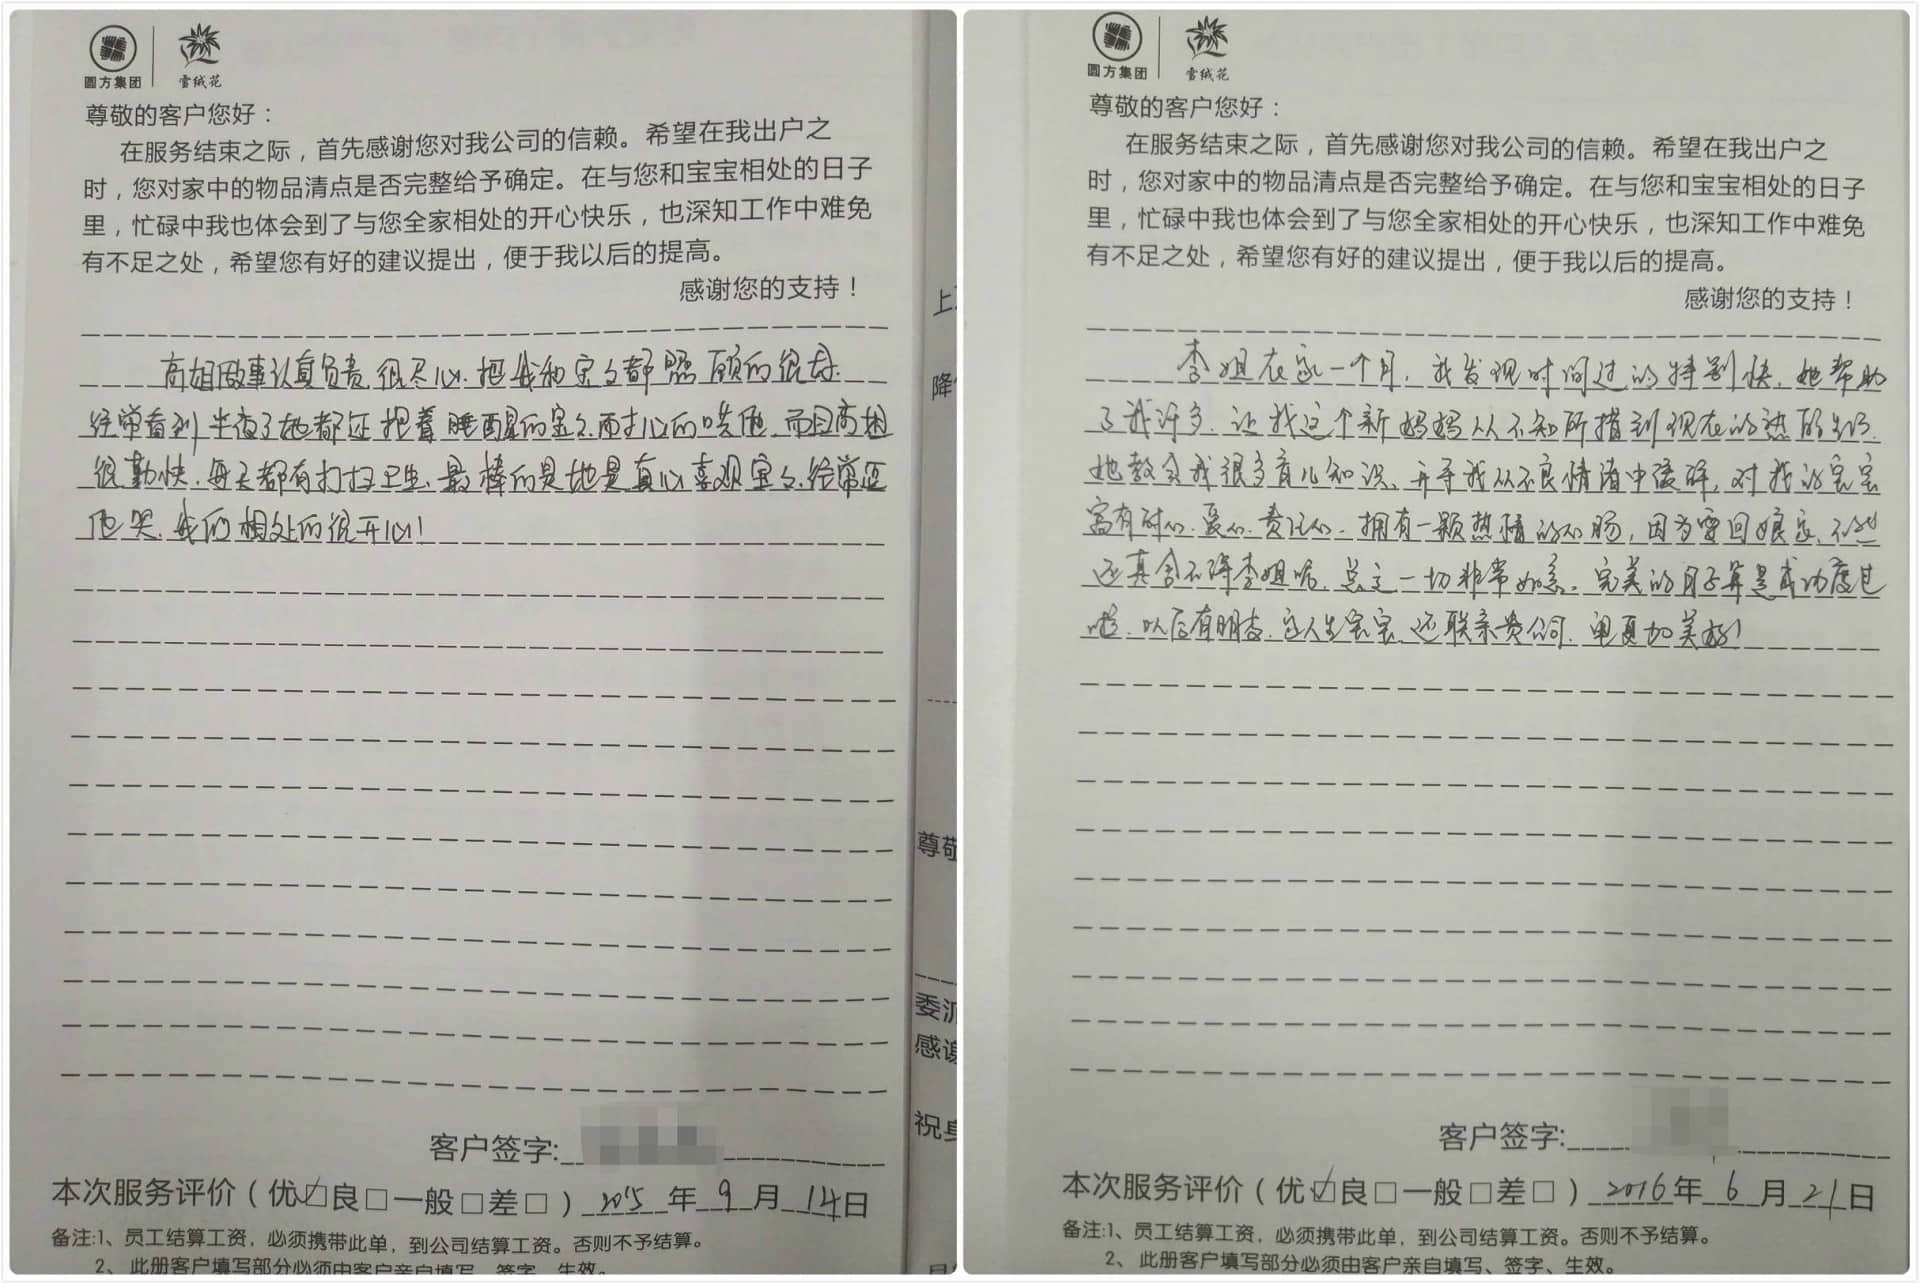 圆方集团
雪绒花
尊敬的客户您好：
在服务结束之际，首先感谢您对我公司的信赖。希望在我出户之
时，您对家中的物品清点是否完整给予确定。在与您和宝宝相处的日子
里，忙碌中我也体会到了与您全家相处的开心快乐，也深知工作中难免
有不足之处，希望您有好的建议提出，便于我以后的提高。
感谢您的支持！
高姐做事认真负责，很尽心，把我和宝宝都照顾的很好.
经常看到半夜了她都还抱着睡醒的宝宝，耐心的哄他.而且高姐
很勤快.每天都有打扫卫生.最棒的是她是真心喜欢宝宝.经常逗
他笑.我们相处的很开心！
客户签字:
本次服务评价（优☑良□一般□差□）2015年9月14日
备注:1、员工结算工资，必须携带此单，到公司结算工资。否则不予结算。
2、此册客户填写部分必须由客户亲自填写、签字、生效。
上
降
尊敬
委派
感谢
祝身
圆方集团
雪绒花
尊敬的客户您好：
在服务结束之际，首先感谢您对我公司的信赖。希望在我出户之
时，您对家中的物品清点是否完整给予确定。在与您和宝宝相处的日子
里，忙碌中我也体会到了与您全家相处的开心快乐，也深知工作中难免
有不足之处，希望您有好的建议提出，便于我以后的提高。
感谢您的支持！
李姐在家一个月，我发现时间过的特别快.她帮助
了我许多.让我这个新妈妈从不知所措到现在的熟能生巧.
她教会我很多育儿知识、开导我从不良情绪中缓解，对我的宝宝
富有耐心.爱心.责任心.拥有一颗热情的心肠，因为要回娘家，不然
还真舍不得李姐呢.总之一切非常如意.完美的月子算是成功度过
啦.以后有朋友.家人生宝宝.还联系贵公司.更加美好！
客户签字:
本次服务评价（优☑良□一般□差□）2016年6月21日
备注:1、员工结算工资，必须携带此单，到公司结算工资。否则不予结算。
2、此册客户填写部分必须由客户亲自填写、签字、生效。